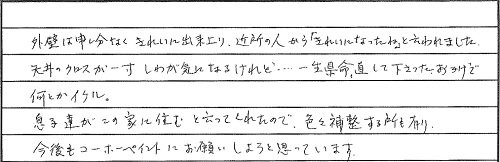 外壁は申し分なくきれいに出来上り、近所の人から「きれいになったね」と言われました。
天井のクロスが一寸しわが気になるけれど……一生県命、直して下さったおかげで
何とかイケル。
息子達がこの家に住むと云ってくれたので、色々補整する所も有り、
今後もコーホーペイントにお願いしようと思っています。